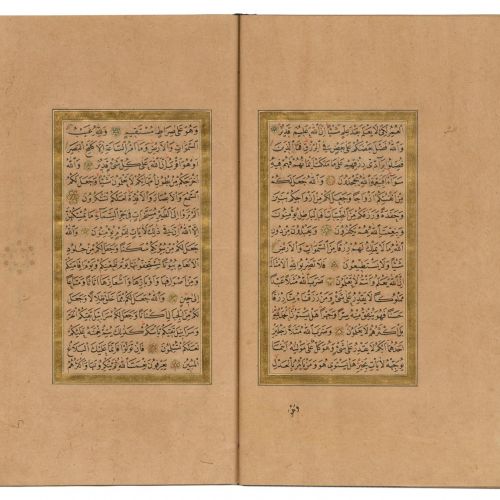 العمر لكي لا يعلم بعد علم شيئا ان الله عليم قدير
والله فضل بعضكم على بعض في الرزق فما الذين
فضلوا برادي رزقهم على ما ملكت ايمانهم فهم فيه
سواء افبنعمة الله يجحدون والله جعل لكم
من انفسكم ازواجا وجعل لكم من ازواجكم بنين
وحفدة ورزقكم من الطيبات افبالباطل يؤمنون
وبنعمت الله هم يكفرون ويعبدون من دون
الله ما لا يملك لهم رزقا من السموات والارض
شيئا ولا يستطيعون فلا تضربوا لله الامثال
ان الله يعلم وانتم لا تعلمون ضرب الله مثلا عبدا
مملوكا لا يقدر على شيء ومن رزقناه منا رزقا
حسنا فهو ينفق منه سرا وجهرا هل يستوون الحمد لله
بل اكثرهم لا يعلمون وضرب الله مثلا رجلين
احدهما ابكم لا يقدر على شيء وهو كل على موليه اينما
يوجهه لا يأت بخير هل يستوي هو ومن يأمر بالعدل
وهو
وهو على صراط مستقيم ولله غيب
السموات والارض وما امر الساعة الا كلمح البصر
او هو اقرب ان الله على كل شيء قدير والله
اخرجكم من بطون امهاتكم لا تعلمون شيئا وجعل لكم
السمع والابصار والافئدة لعلكم تشكرون
الم يروا الى الطير مسخرات في جو السماء ما يمسكهن
الا الله ان في ذلك لايات لقوم يؤمنون والله
جعل لكم من بيوتكم سكنا وجعل لكم من جلود
الانعام بيوتا تستخفونها يوم ظعنكم ويوم اقامتكم
ومن اصوافها واوبارها واشعارها اثاثا ومتاعا
الى حين والله جعل لكم مما خلق ظلالا وجعل
لكم من الجبال اكنانا وجعل لكم سرابيل تقيكم الحر
وسرابيل تقيكم بأسكم كذلك يتم نعمته عليكم
لعلكم تسلمون فان تولوا فانما عليك البلاغ
المبين يعرفون نعمت الله ثم ينكرونها واكثرهم